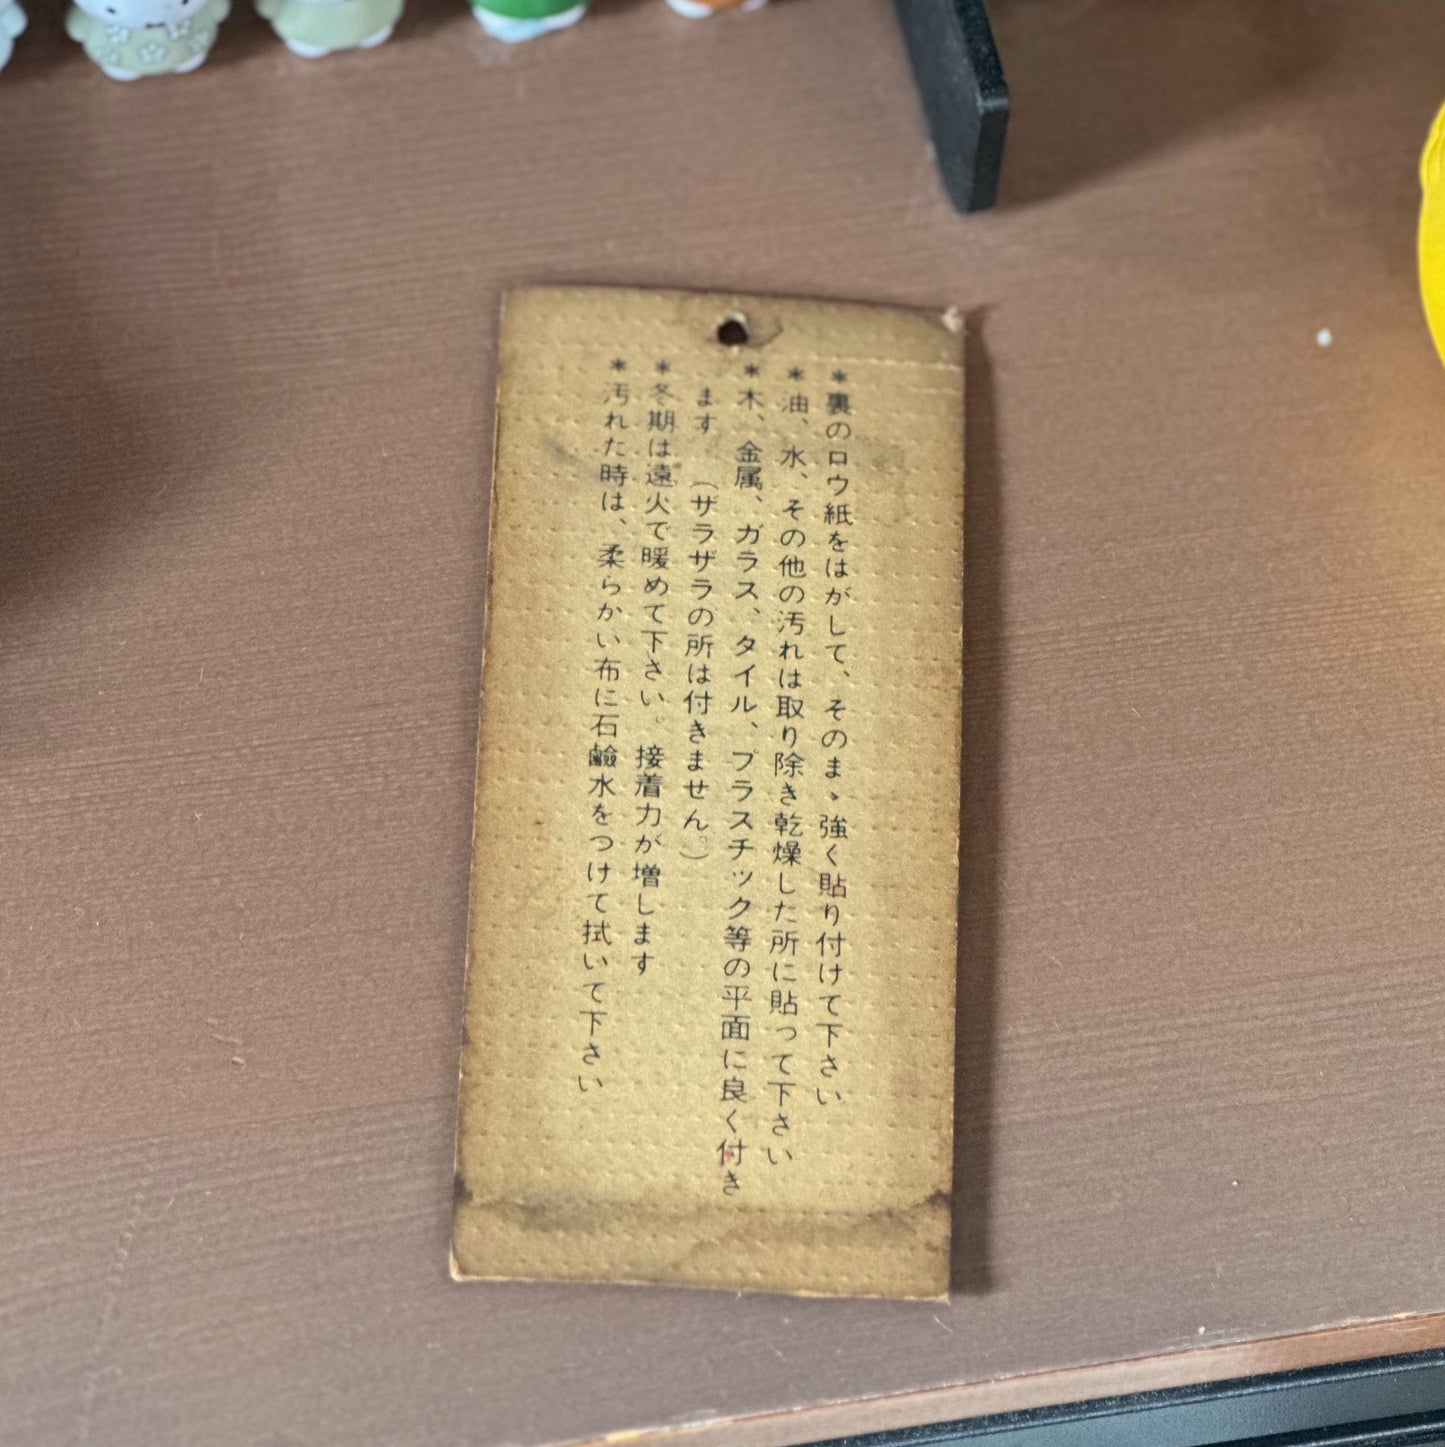 ＊裏のロウ紙をはがして、そのまゝ強く貼り付けて下さい
＊油、水、その他の汚れは取り除き乾燥した所に貼って下さい
＊木、金属、ガラス、タイル、プラスチック等の平面に良く付き
ます（ザラザラの所は付きません。）
＊冬期は遠火で暖めて下さい。接着力が増します
＊汚れた時は、柔らかい布に石鹼水をつけて拭いて下さい